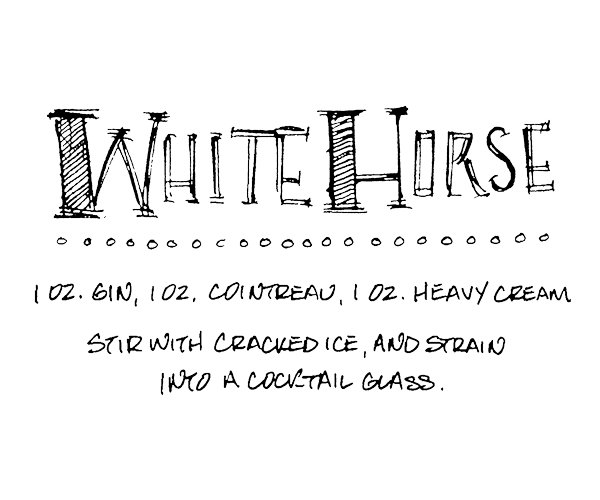 WHITE HORSE
1 OZ. GIN, 1 OZ, COINTREAU, 1 OZ. HEAVY CREAM
STIR WITH CRACKED ICE, AND STRAIN
INTO A COCKTAIL GLASS.